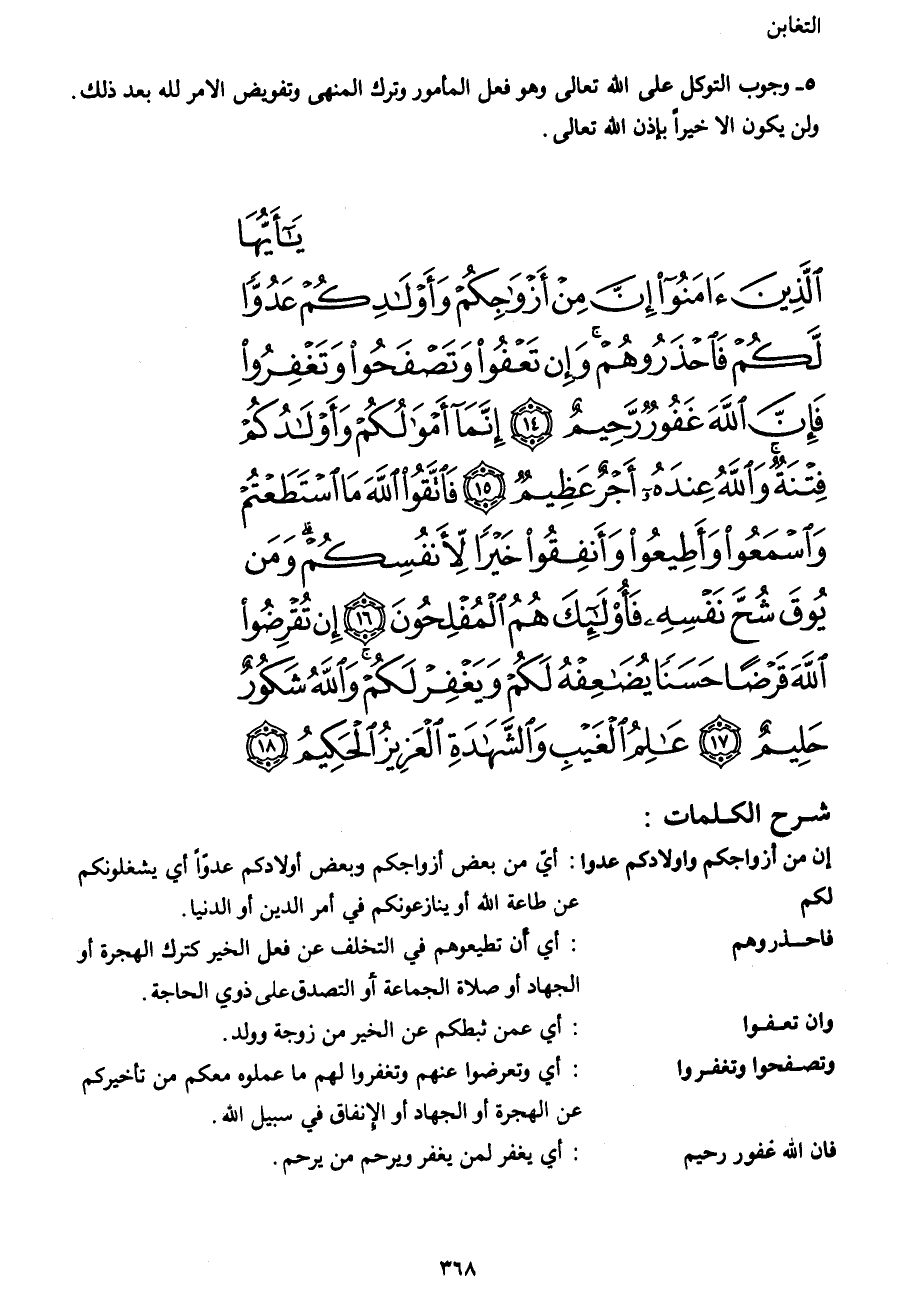 التغابن
٥ـ وجوب التوكل على الله تعالى وهو فعل المأمور وترك المنهى وتفويض الامر لله بعد ذلك .
ولن يكون الا خيراً بإذن الله تعالى .
يَـٰٓأَيُّهَا
ٱلَّذِينَ ءَامَنُوٓا۟ إِنَّ مِنْ أَزْوَٰجِكُمْ وَأَوْلَـٰدِكُمْ عَدُوًّا
لَّكُمْ فَٱحْذَرُوهُمْ ۚ وَإِن تَعْفُوا۟ وَتَصْفَحُوا۟ وَتَغْفِرُوا۟
فَإِنَّ ٱللَّهَ غَفُورٌ رَّحِيمٌ ١٤ إِنَّمَآ أَمْوَٰلُكُمْ وَأَوْلَـٰدُكُمْ
فِتْنَةٌ ۚ وَٱللَّهُ عِندَهُۥٓ أَجْرٌ عَظِيمٌ ١٥ فَٱتَّقُوا۟ ٱللَّهَ مَا ٱسْتَطَعْتُمْ
وَٱسْمَعُوا۟ وَأَطِيعُوا۟ وَأَنفِقُوا۟ خَيْرًا لِّأَنفُسِكُمْ ۗ وَمَن
يُوقَ شُحَّ نَفْسِهِۦ فَأُو۟لَـٰٓئِكَ هُمُ ٱلْمُفْلِحُونَ ١٦ إِن تُقْرِضُوا۟
ٱللَّهَ قَرْضًا حَسَنًا يُضَـٰعِفْهُ لَكُمْ وَيَغْفِرْ لَكُمْ ۚ وَٱللَّهُ شَكُورٌ
حَلِيمٌ ١٧ عَـٰلِمُ ٱلْغَيْبِ وَٱلشَّهَـٰدَةِ ٱلْعَزِيزُ ٱلْحَكِيمُ ١٨
شرح الكلمات :
إن من أزواجكم واولادكم عدوا : أيّ من بعض أزواجكم وبعض أولادكم عدوّاً أي يشغلونكم
لكم عن طاعة الله أو ينازعونكم في أمر الدين أو الدنيا.
فاحذروهم : أي أن تطيعوهم في التخلف عن فعل الخير كترك الهجرة أو
الجهاد أو صلاة الجماعة أو التصدق على ذوي الحاجة .
وان تعفوا : أي عمن ثبطكم عن الخير من زوجة وولد.
وتصفحوا وتغفروا : أي وتعرضوا عنهم وتغفروا لهم ما عملوه معكم من تأخيركم
عن الهجرة أو الجهاد أو الإنفاق في سبيل الله .
فان الله غفور رحيم : أي يغفر لمن يغفر ويرحم من يرحم .
٣٦٨